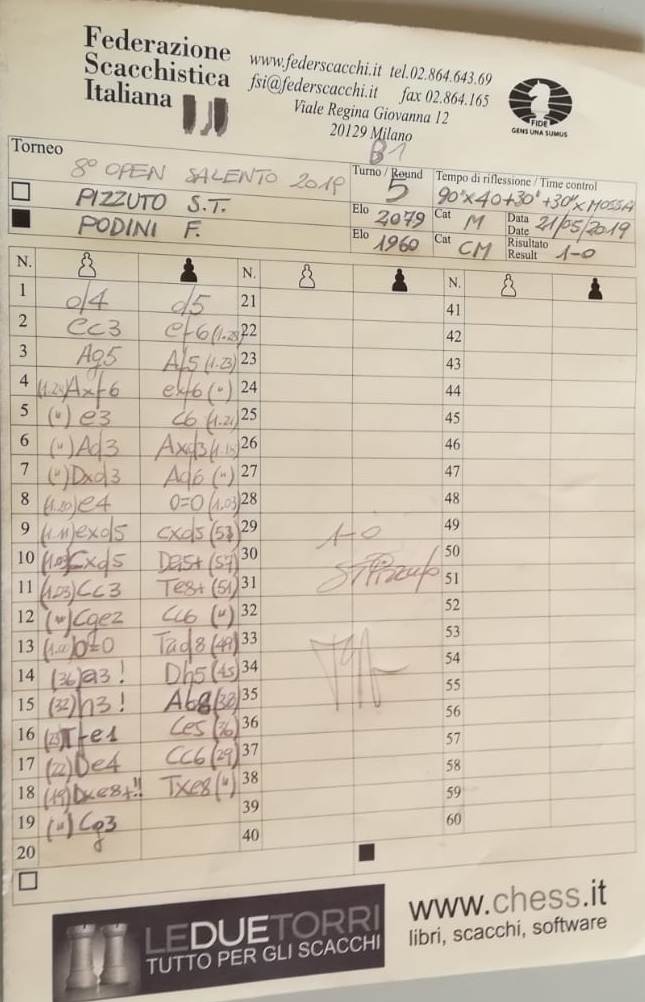 Federazione
Scacchistica
Italiana
www.federscacchi.it tel.02.864.643.69
fsi@federscacchi.it fax 02.864.165
Viale Regina Giovanna 12
20129 Milano
FIDE
GENS UNA SUMUS
B1
Torneo 8° OPEN SALENTO 2019
Turno / Round 5
Tempo di riflessione / Time control 90'x40+30'+30"x MOSSA
PIZZUTO S.T. Elo 2079 Cat M Data Date 21/05/2019
PODINI F. Elo 1960 Cat CM Risultato Result 1-0
N. N. N.
1 d4 d5 21 41
2 Cc3 Cf6 (1.28) 22 42
3 Ag5 Af5 (1.23) 23 43
4 Axf6 exf6 (") 24 44
5 (") e3 c6 (1.21) 25 45
6 (") Ad3 Axd3 26 46
7 (") Dxd3 Ad6 (") 27 47
8 (1.20) e4 0=0 (1.03) 28 48
9 (1.11) exd5 cxd5 29 49
10 Cxd5 Da5+ (57) 30 1-0 50
11 (1.03) Cc3 Te8+ (51) 31 51
12 (") Cge2 Cc6 (") 32 52
13 0=0 Tad8 (49) 33 53
14 (36) a3! Dh5 (45) 34 54
15 (32) h3! Ab8 (38) 35 55
16 Tfe1 Ce5 (36) 36 56
17 (22) De4 Cc6 (29) 37 57
18 (19) Dxe8+!! Txe8 (") 38 58
19 (") Cg3 39 59
20 40 60
LEDUETORRI
TUTTO PER GLI SCACCHI
www.chess.it
libri, scacchi, software